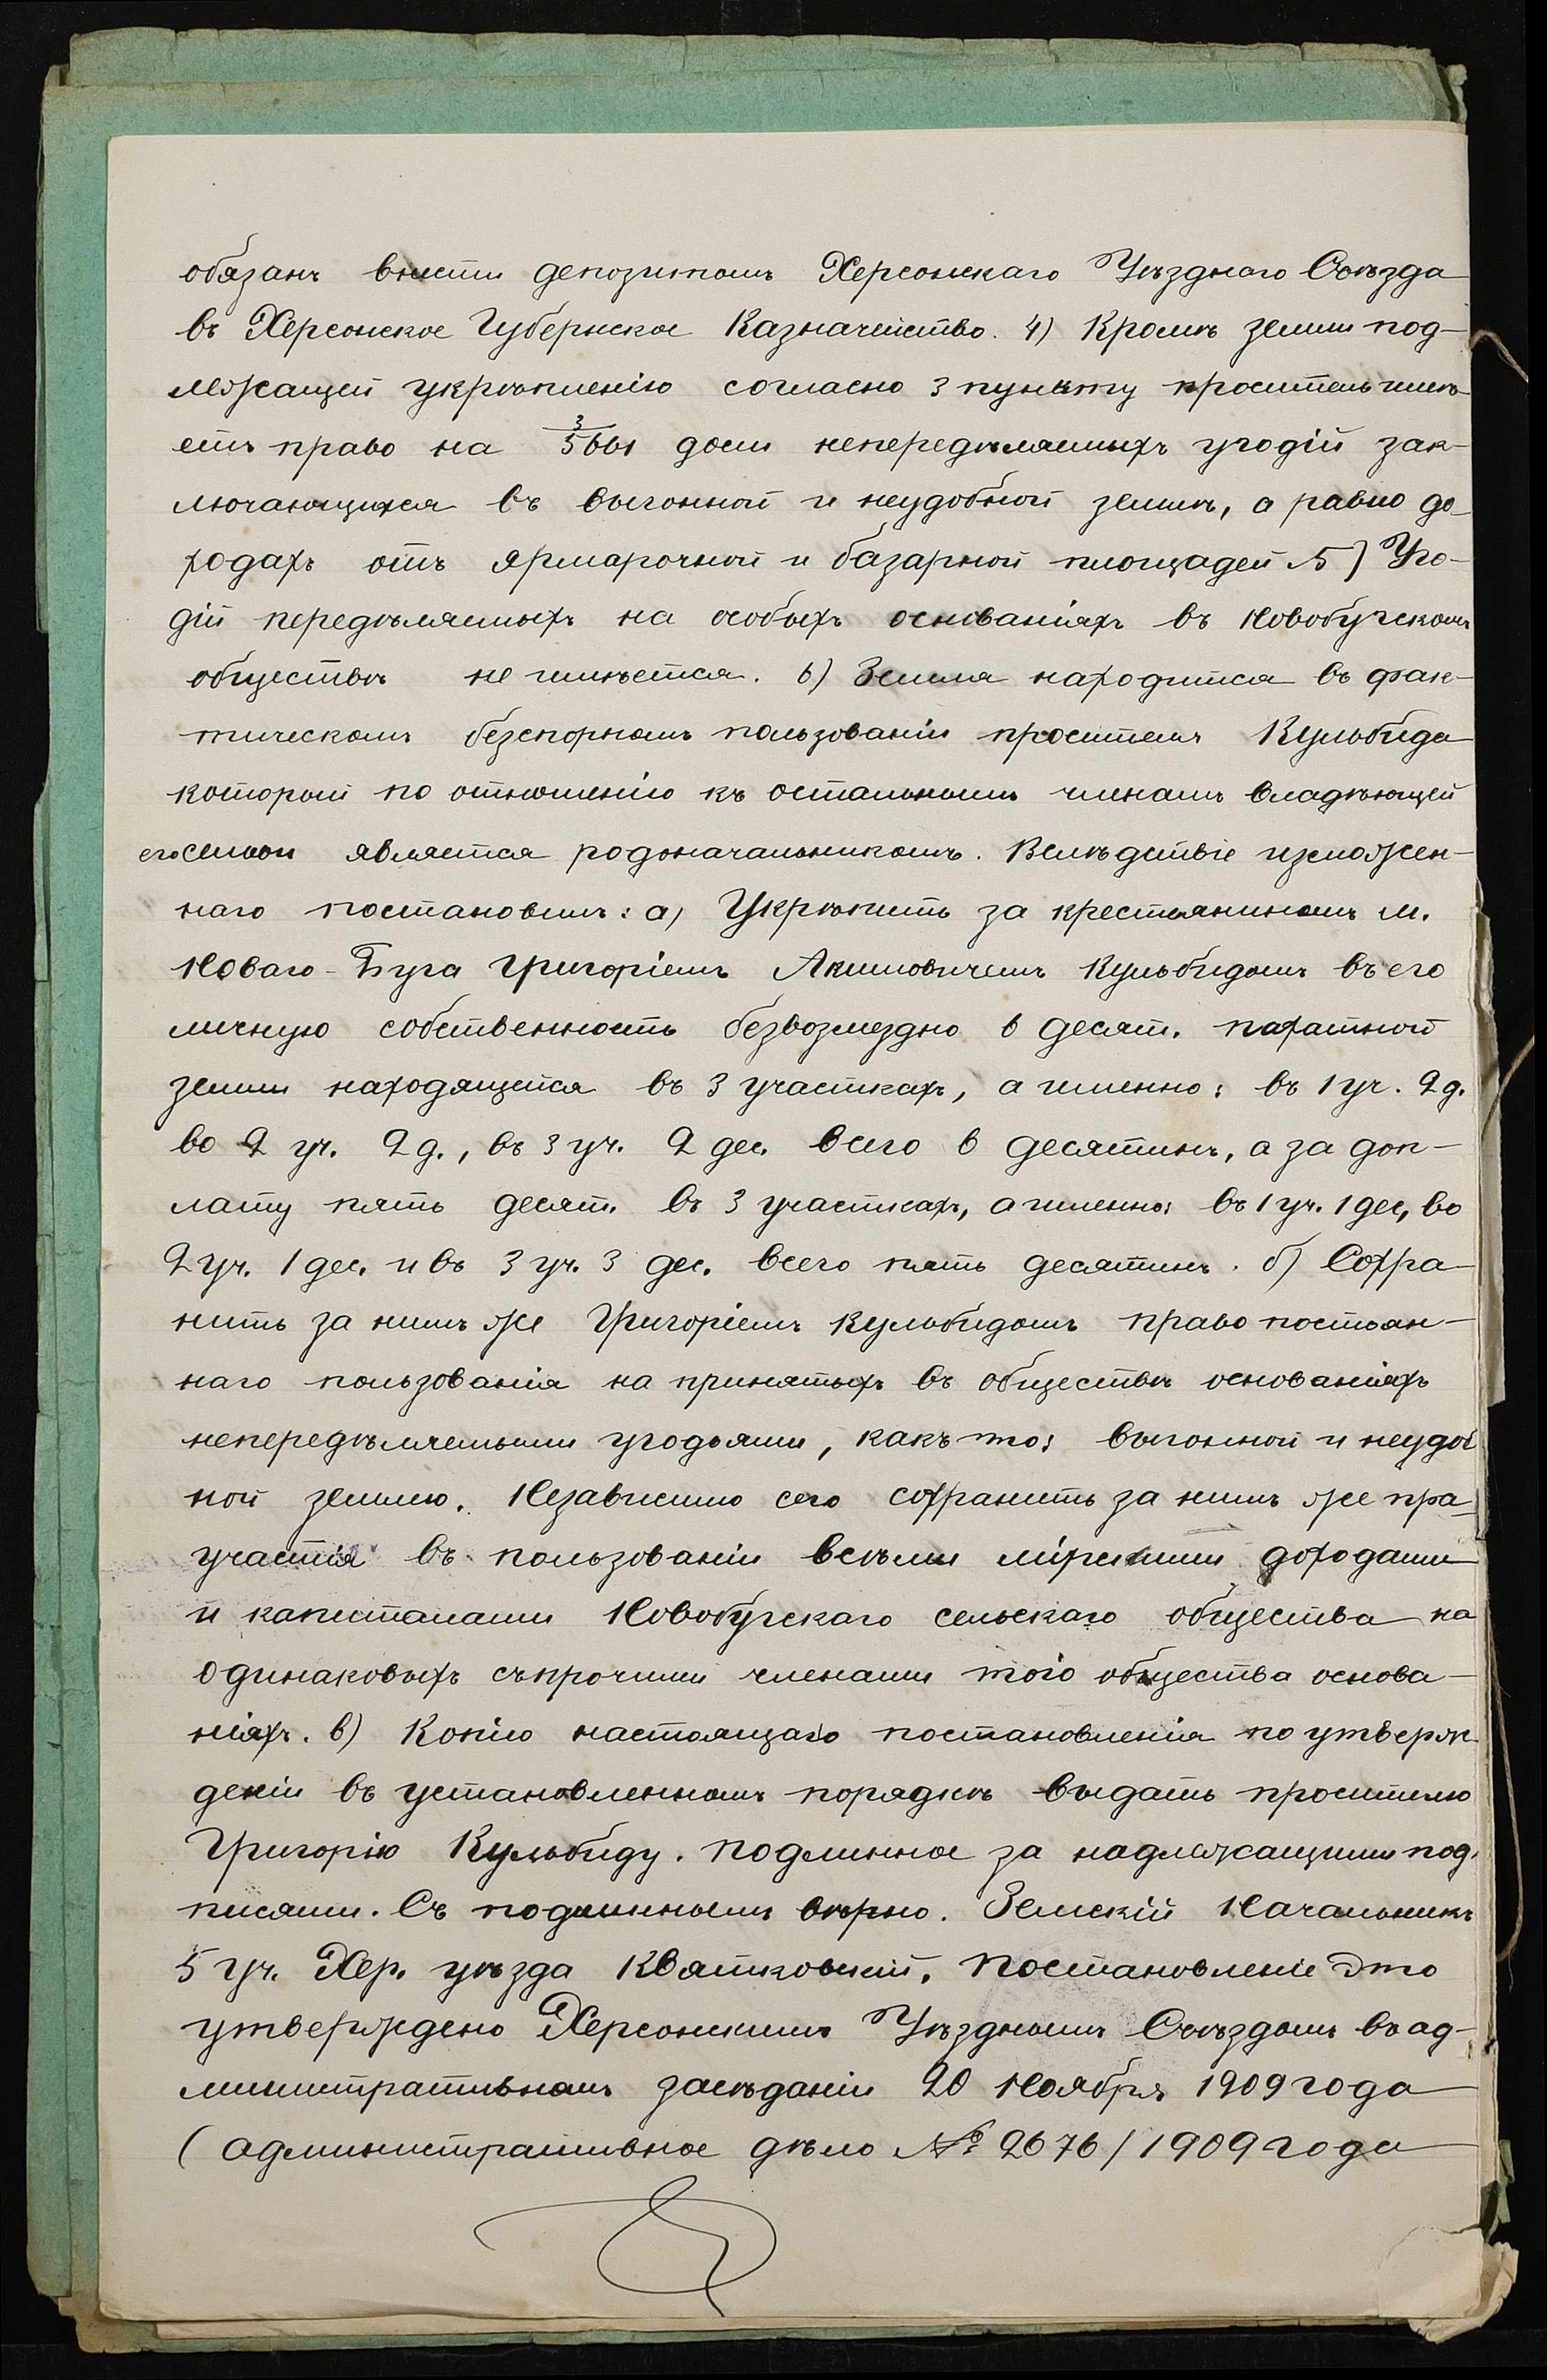 обязанъ внести депозитомъ Херсонскаго Уѣзднаго Съѣзда
въ Херсонское Губернское Казначейство. 4) Кромѣ земли под-
лежащей укрѣпленію согласно 3 пункту проситель имѣ-
етъ право на 3/5661 доли непередѣляемыхъ угодій зак-
лючающихся въ выгонной и неудобной землѣ, а равно до-
ходахъ отъ ярмарочной и базарной площадей 5) Уго-
дій передѣляемыхъ на особыхъ основаніяхъ въ Новобугскомъ
обществѣ не имѣется. 6) Земля находится въ фак-
тическомъ безспорномъ пользованіи просителя Кульбида
который по отношенію къ остальнымъ членамъ владѣющей
его семьи является родоначальникомъ. Вслѣдствіе изложен-
наго постановилъ: а) Укрѣпить за крестьяниномъ м.
Новаго-Буга Григоріемъ Акимовичемъ Кульбидомъ въ его
личную собственность безвозмездно 6 десят. пахатной
земли находящейся въ 3 участкахъ, а именно: въ 1 уч. 2 д.
во 2 уч. 2 д., въ 3 уч. 2 дес. всего 6 десятинъ, а за доп-
лату пять десят. въ 3 участкахъ, а именно: въ 1 уч. 1 дес, во
2 уч. 1 дес. и въ 3 уч. 3 дес. всего пять десятинъ. б) Сохра-
нить за нимъ же Григоріемъ Кульбидомъ право постоян-
наго пользованія на принятыхъ въ обществѣ основаніяхъ
непередѣляемыми угодьями, какъ то: выгонной и неудоб
ной землею. Независимо сего сохранить за нимъ же пра-
участія въ пользованіи всѣми мірскими доходами
и капиталами Новобугскаго сельскаго общества на
одинаковыхъ съ прочими членами того общества основа-
ніяхъ. в) Копію настоящаго постановленія по утверж-
деніи въ установленномъ порядкѣ выдать просителю
Григорію Кульбиду. Подлинное за надлежащими под-
писями. Съ подлиннымъ вѣрно. Земскій Начальникъ
5 уч. Хер. уѣзда Квятковскій. Постановленіе это
утверждено Херсонскимъ Уѣзднымъ Съѣздомъ въ ад-
министративномъ засѣданіи 20 Ноября 1909 года
(административное дѣло № 2676/1909 года